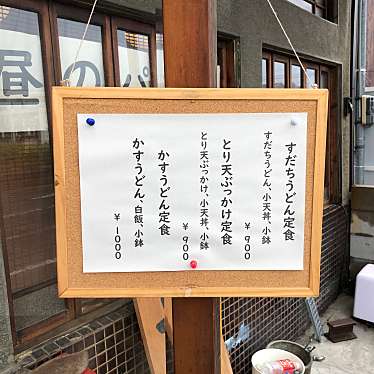 すだちうどん定食
すだちうどん、小天丼、小鉢
￥900
とり天ぶっかけ定食
とり天ぶっかけ、小天丼、小鉢
￥900
かすうどん定食
かすうどん、白飯、小鉢
￥1000
昼のパ